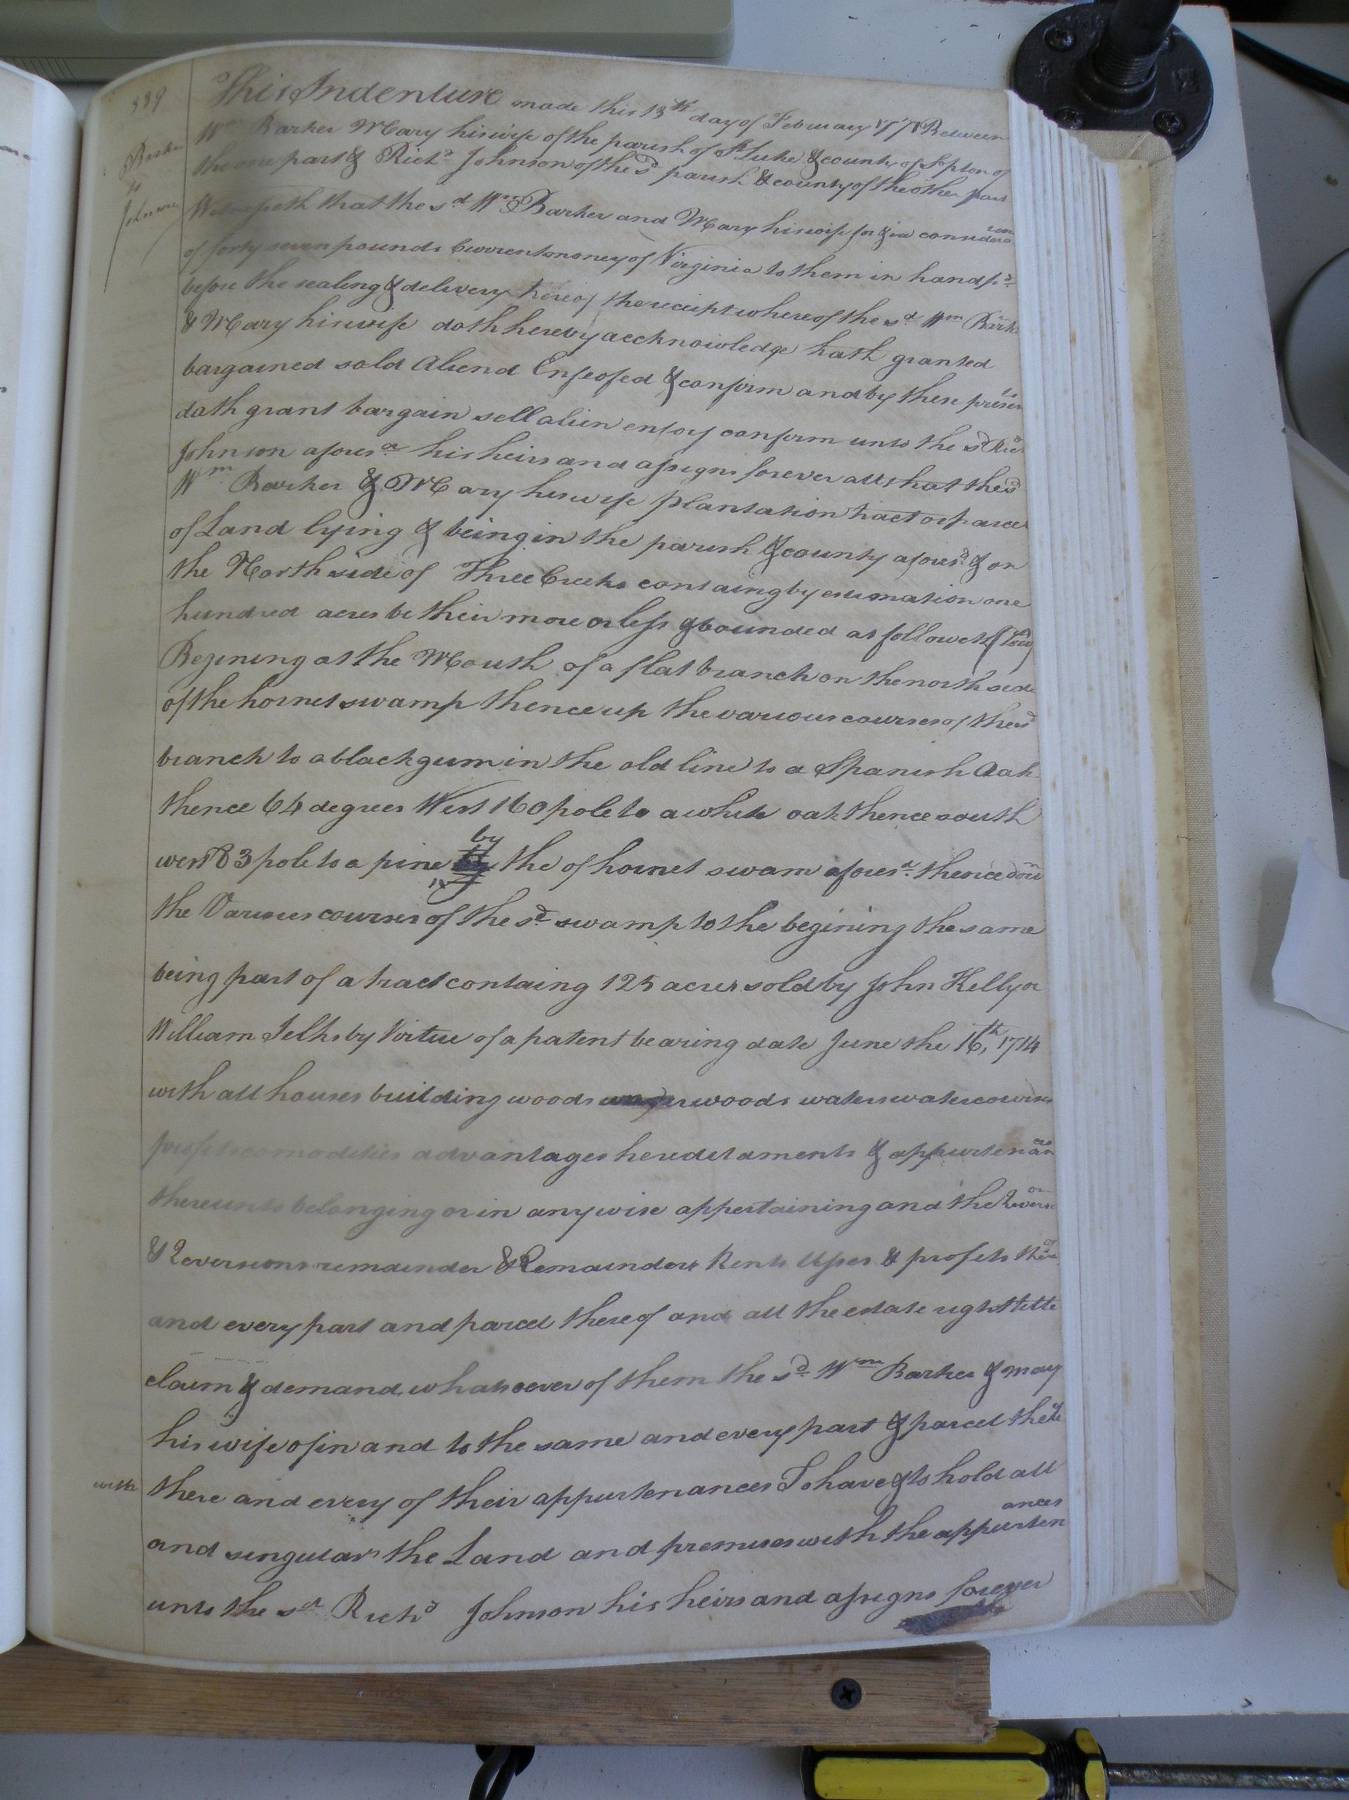 339
Barker
to
Johnson
This Indenture made this 13th day of February 1777 Between
Wm Barker Mary his wife of the parish of St Luke & county of Sopton of
the one part & Richd Johnson of the sd parish & county of the other part
Witnesseth that the sd Wm Barker and Mary his wife for & in consideration
of forty seven pounds Current money of Virginia to them in hand pd
before the sealing & delivery hereof the receipt whereof the sd Wm Barker
& Mary his wife doth hereby acknowledge hath granted
bargained sold Aliend Enfeofed & confirm and by these presents
doth grant bargain sell alien enfoy confirm unto the sd Richd
Johnson aforesd his heirs and assigns forever all that the sd
Wm Barker & Mary his wife plantation tract or parcel
of Land lying & being in the parish & county aforesd & on
the North side of Three Creeks containg by estimation one
hundred acres be their more or less & bounded as followeth (to wit)
Begining at the Mouth of a flat branch on the north side
of the hornet swamp thence up the various courses of the sd
branch to a black gum in the old line to a Spanish Oak
thence 64 degrees West 160 pole to a white oak thence south
west 83 pole to a pine by the of hornet swam aforesd. thence down
the Various courses of the sd swamp to the begining the same
being part of a tract containg 125 acres sold by John Kelly or
William Selks by Virtue of a patent bearing date June the 16th, 1714
with all houses building woods underwoods waters watercourses
profits comodities advantages hereditaments & appurtenances
thereunto belonging or in any wise appertaining and the Reversion
& Reversions remainder & Remainders Rents Uses & profits thereof
and every part and parcel thereof and all the estate right title
claim & demand whatsoever of them the sd Wm Barker & may
his wife of in and to the same and every part & parcel thereof
with
there and every of their appurtenances To have & to hold all
and singular the Land and premises with the appurtenances
unto the sd Richd Johnson his heirs and assigns forever